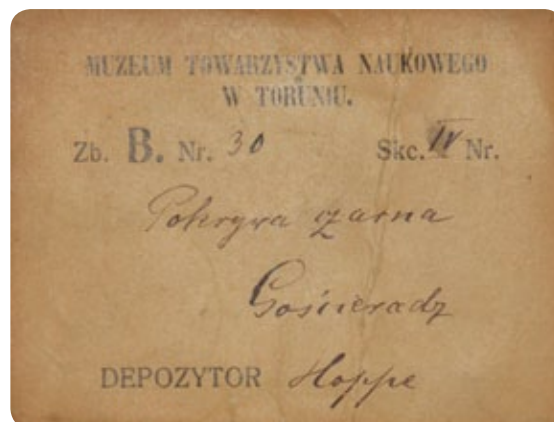 MUZEUM TOWARZYSTWA NAUKOWEGO
W TORUNIU.
Zb. B. Nr. 30 Skc. IV Nr.
Pokrywa czarna
Gościeradz
DEPOZYTOR Hoppe